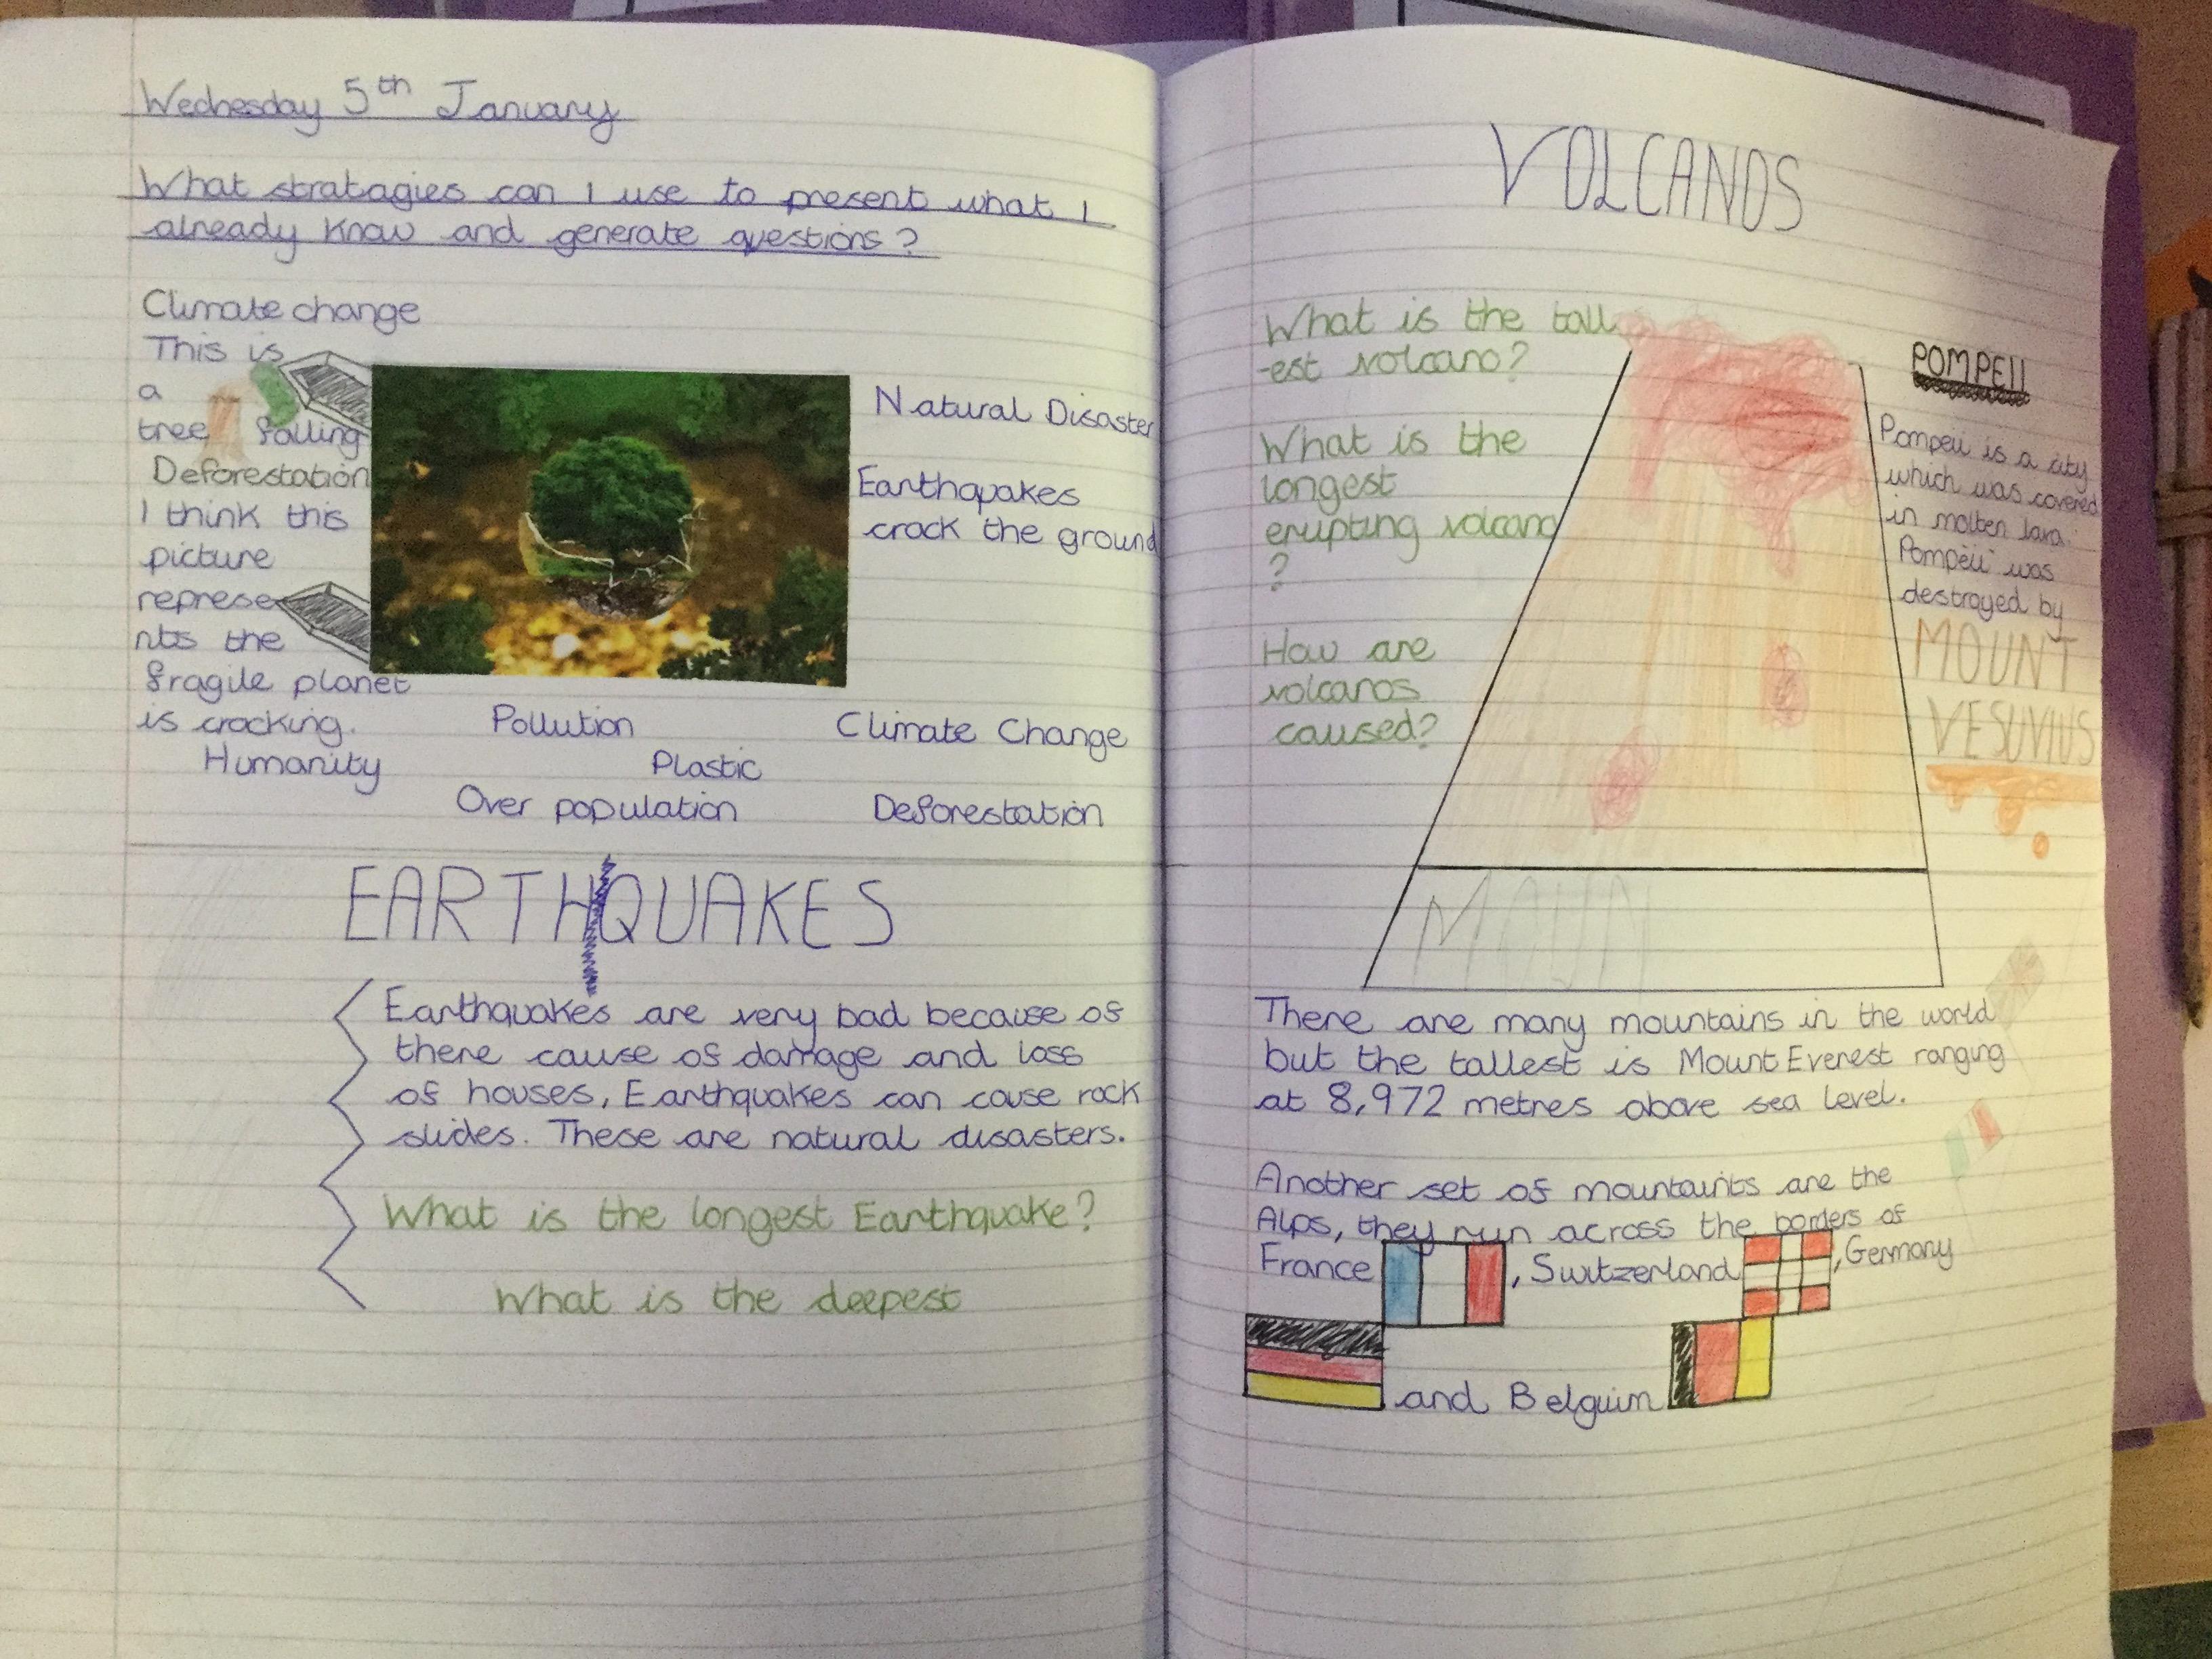 Wednesday 5th January
What stratagies can I use to present what I
already know and generate questions?
Climate change
This is
a
tree falling
Deforestation
I think this
picture
represe
nts the
fragile planet
is cracking.
Humanity
Natural Disaster
Earthquakes
crack the ground
Pollution
Climate Change
Plastic
Over population
Deforestation
EARTHQUAKES
Earthquakes are very bad because of
there cause of damage and loss
of houses, Earthquakes can cause rock
slides. These are natural disasters.
What is the longest Earthquake?
What is the deepest
VOLCANOS
What is the tall
-est volcano?
What is the
longest
erupting volcano
?
How are
volcanos
caused?
POMPEII
Pompeii is a city
which was covered
in molten lava.
Pompeii was
destroyed by
MOUNT
VESUVIUS
MOUN
There are many mountains in the world
but the tallest is Mount Everest ranging
at 8,972 metres above sea level.
Another set of mountains are the
Alps, they run across the borders of
France , Switzerland , Germany
and Belguim